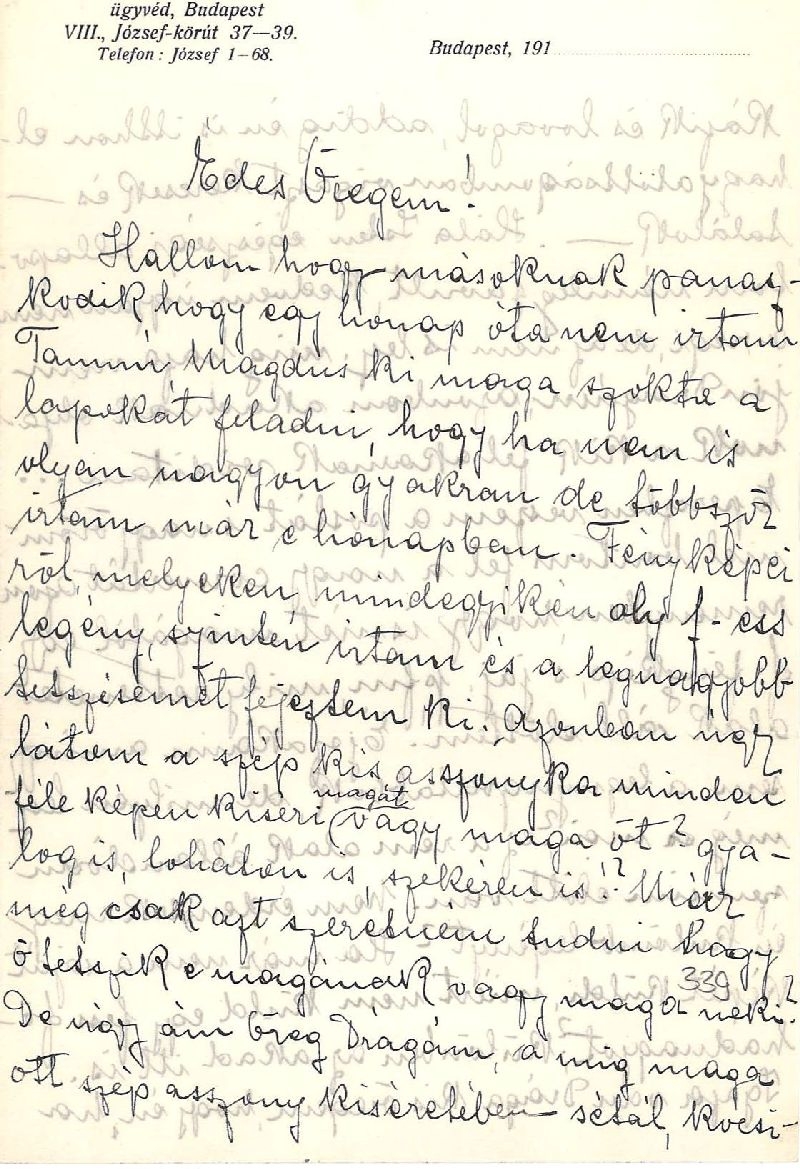 ügyvéd, Budapest
VIII., József-körút 37—39.
Telefon: József 1—68.
Budapest, 191
Édes Öregem!
Hallom hogy másoknak panasz-
kodik hogy egy hónap óta nem irtam
Tanum Magdus ki maga szokta a
lapokat feladni, hogy ha nem is
olyan nagyon gyakran de többször
irtam már e hónapban. Fényképei
ről, melyeken mindegyikén oly f-ess
legény, szintén irtam és a legnagyobb
tetszésemet fejeztem ki. Azonban úgy
látom a szép kis asszonyka minden
féle képen kiséri magát (vagy maga őt? gya-
log is, lóháton is, szekéren is!? Már
még csak azt szeretném tudni hogy
ő tetszik e magának vagy maga neki?
339
De úgy ám öreg Drágám, a mig maga
ott szép asszony kiséretében sétál, kocsi-